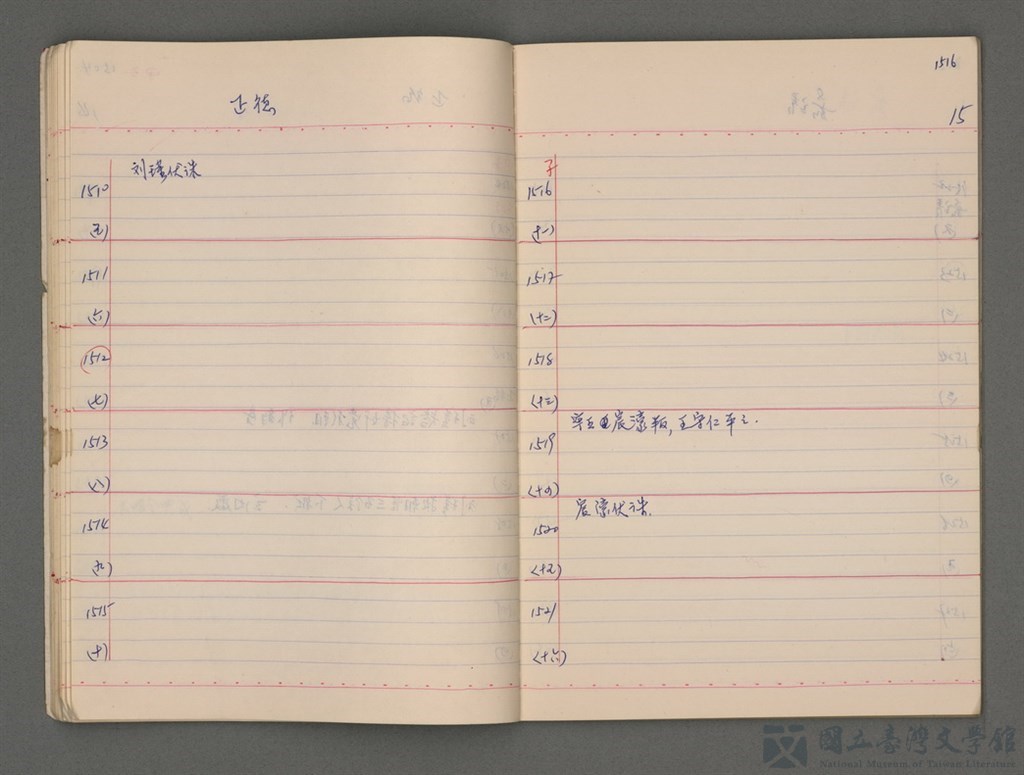 正德
刘瑾伏誅
1510
(五)
1511
(六)
1512
(七)
1513
(八)
1514
(九)
1515
(十)
1516
15
子
1516
(十一)
1517
(十二)
1518
(十三)
寧王宸濠叛,王守仁平之.
1519
(十四)
宸濠伏誅.
1520
(十五)
1521
(十六)
國立臺灣文學館
National Museum of Taiwan Literature